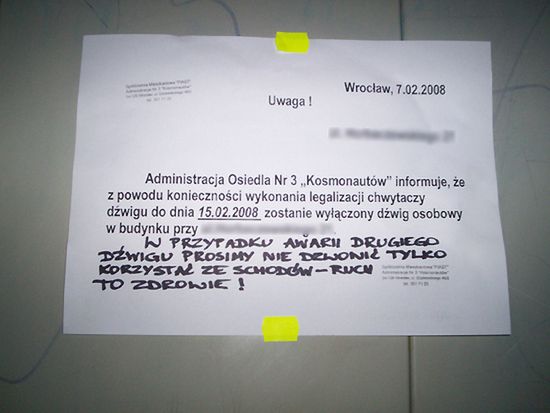 Spółdzielnia Mieszkaniowa "PIAST"
Administracja Nr 3 "Kosmonautów"
Wrocław, 7.02.2008
Uwaga !
Administracja Osiedla Nr 3 „Kosmonautów” informuje, że
z powodu konieczności wykonania legalizacji chwytaczy
dźwigu do dnia 15.02.2008 zostanie wyłączony dźwig osobowy
w budynku przy
W PRZYPADKU AWARII DRUGIEGO
DŹWIGU PROSIMY NIE DZWONIĆ TYLKO
KORZYSTAĆ ZE SCHODÓW – RUCH
TO ZDROWIE !
Spółdzielnia Mieszkaniowa "PIAST"
Administracja Nr 3 "Kosmonautów"